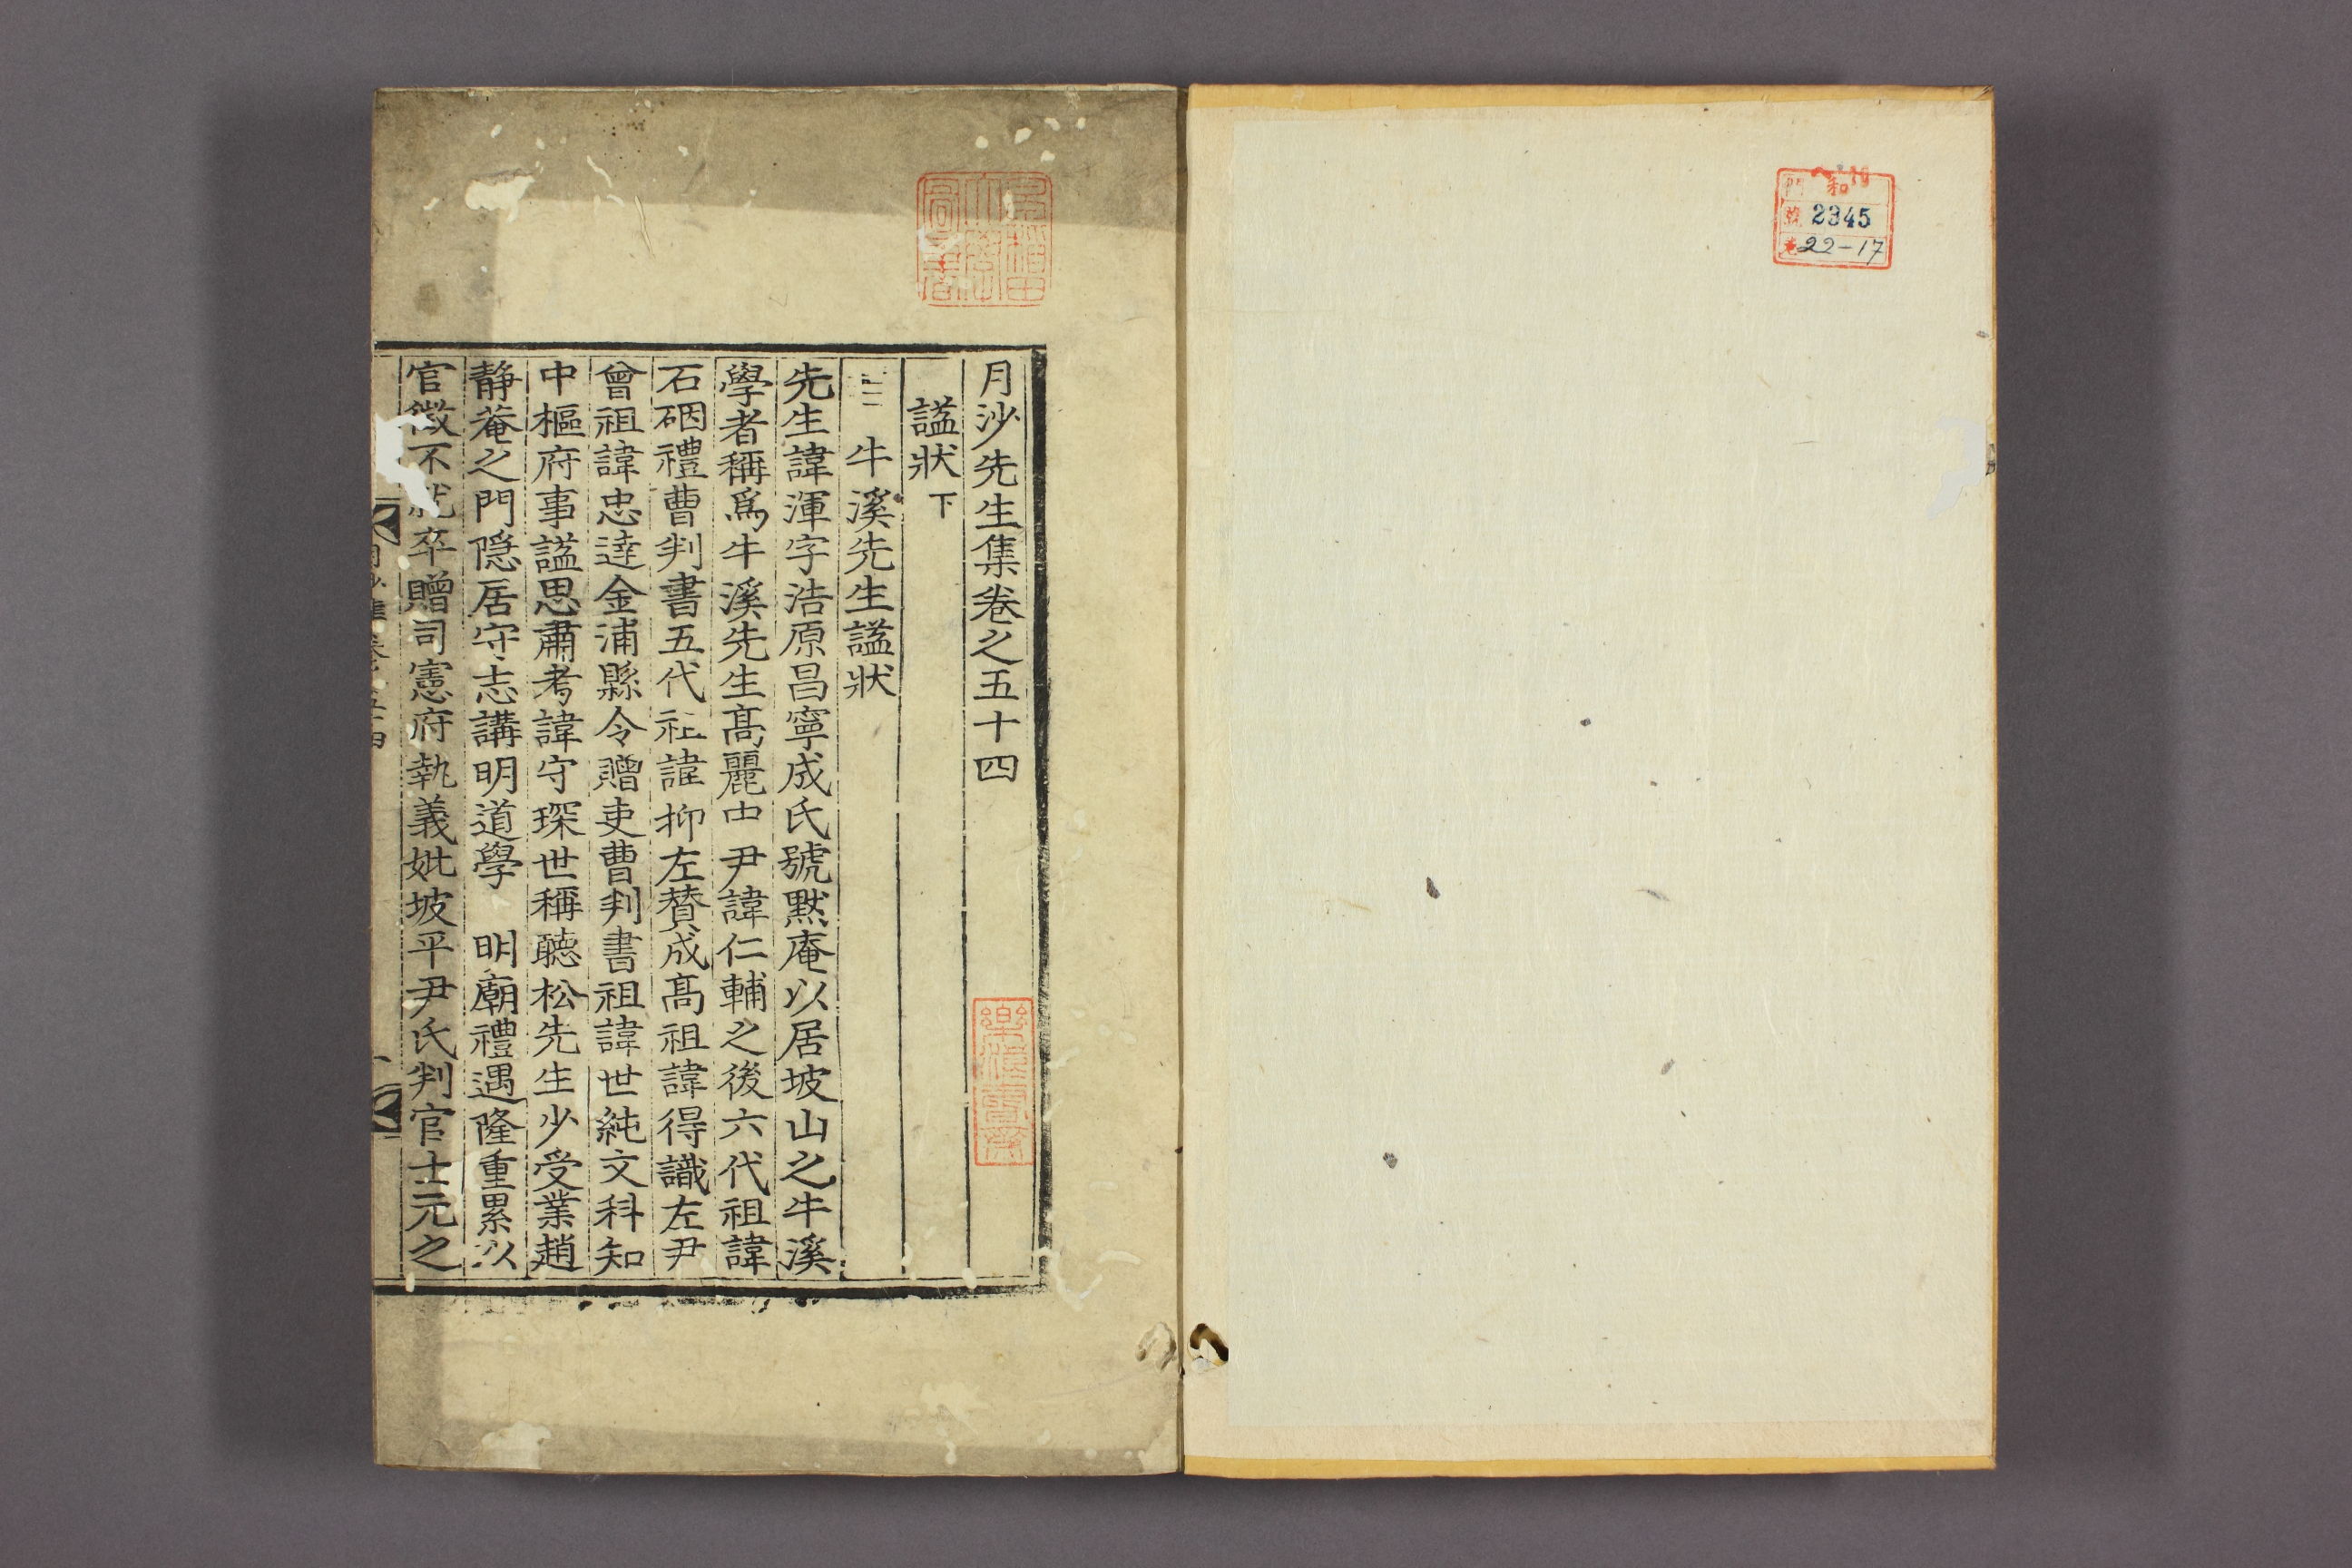 和
門
號 2345
22-17
月沙先生集卷之五十四
諡狀下
牛溪先生諡狀
先生諱渾字浩原昌寧成氏號默庵以居坡山之牛溪
學者稱爲牛溪先生高麗中尹諱仁輔之後六代祖諱
石𥐴禮曹判書五代祖諱抑左贊成高祖諱得識左尹
曾祖諱忠達金浦縣令贈吏曹判書祖諱世純文科知
中樞府事諡思肅考諱守琛世稱聽松先生少受業趙
靜菴之門隱居守志講明道學 明廟禮遇隆重累以
官徵不就卒贈司憲府執義妣坡平尹氏判官士元之